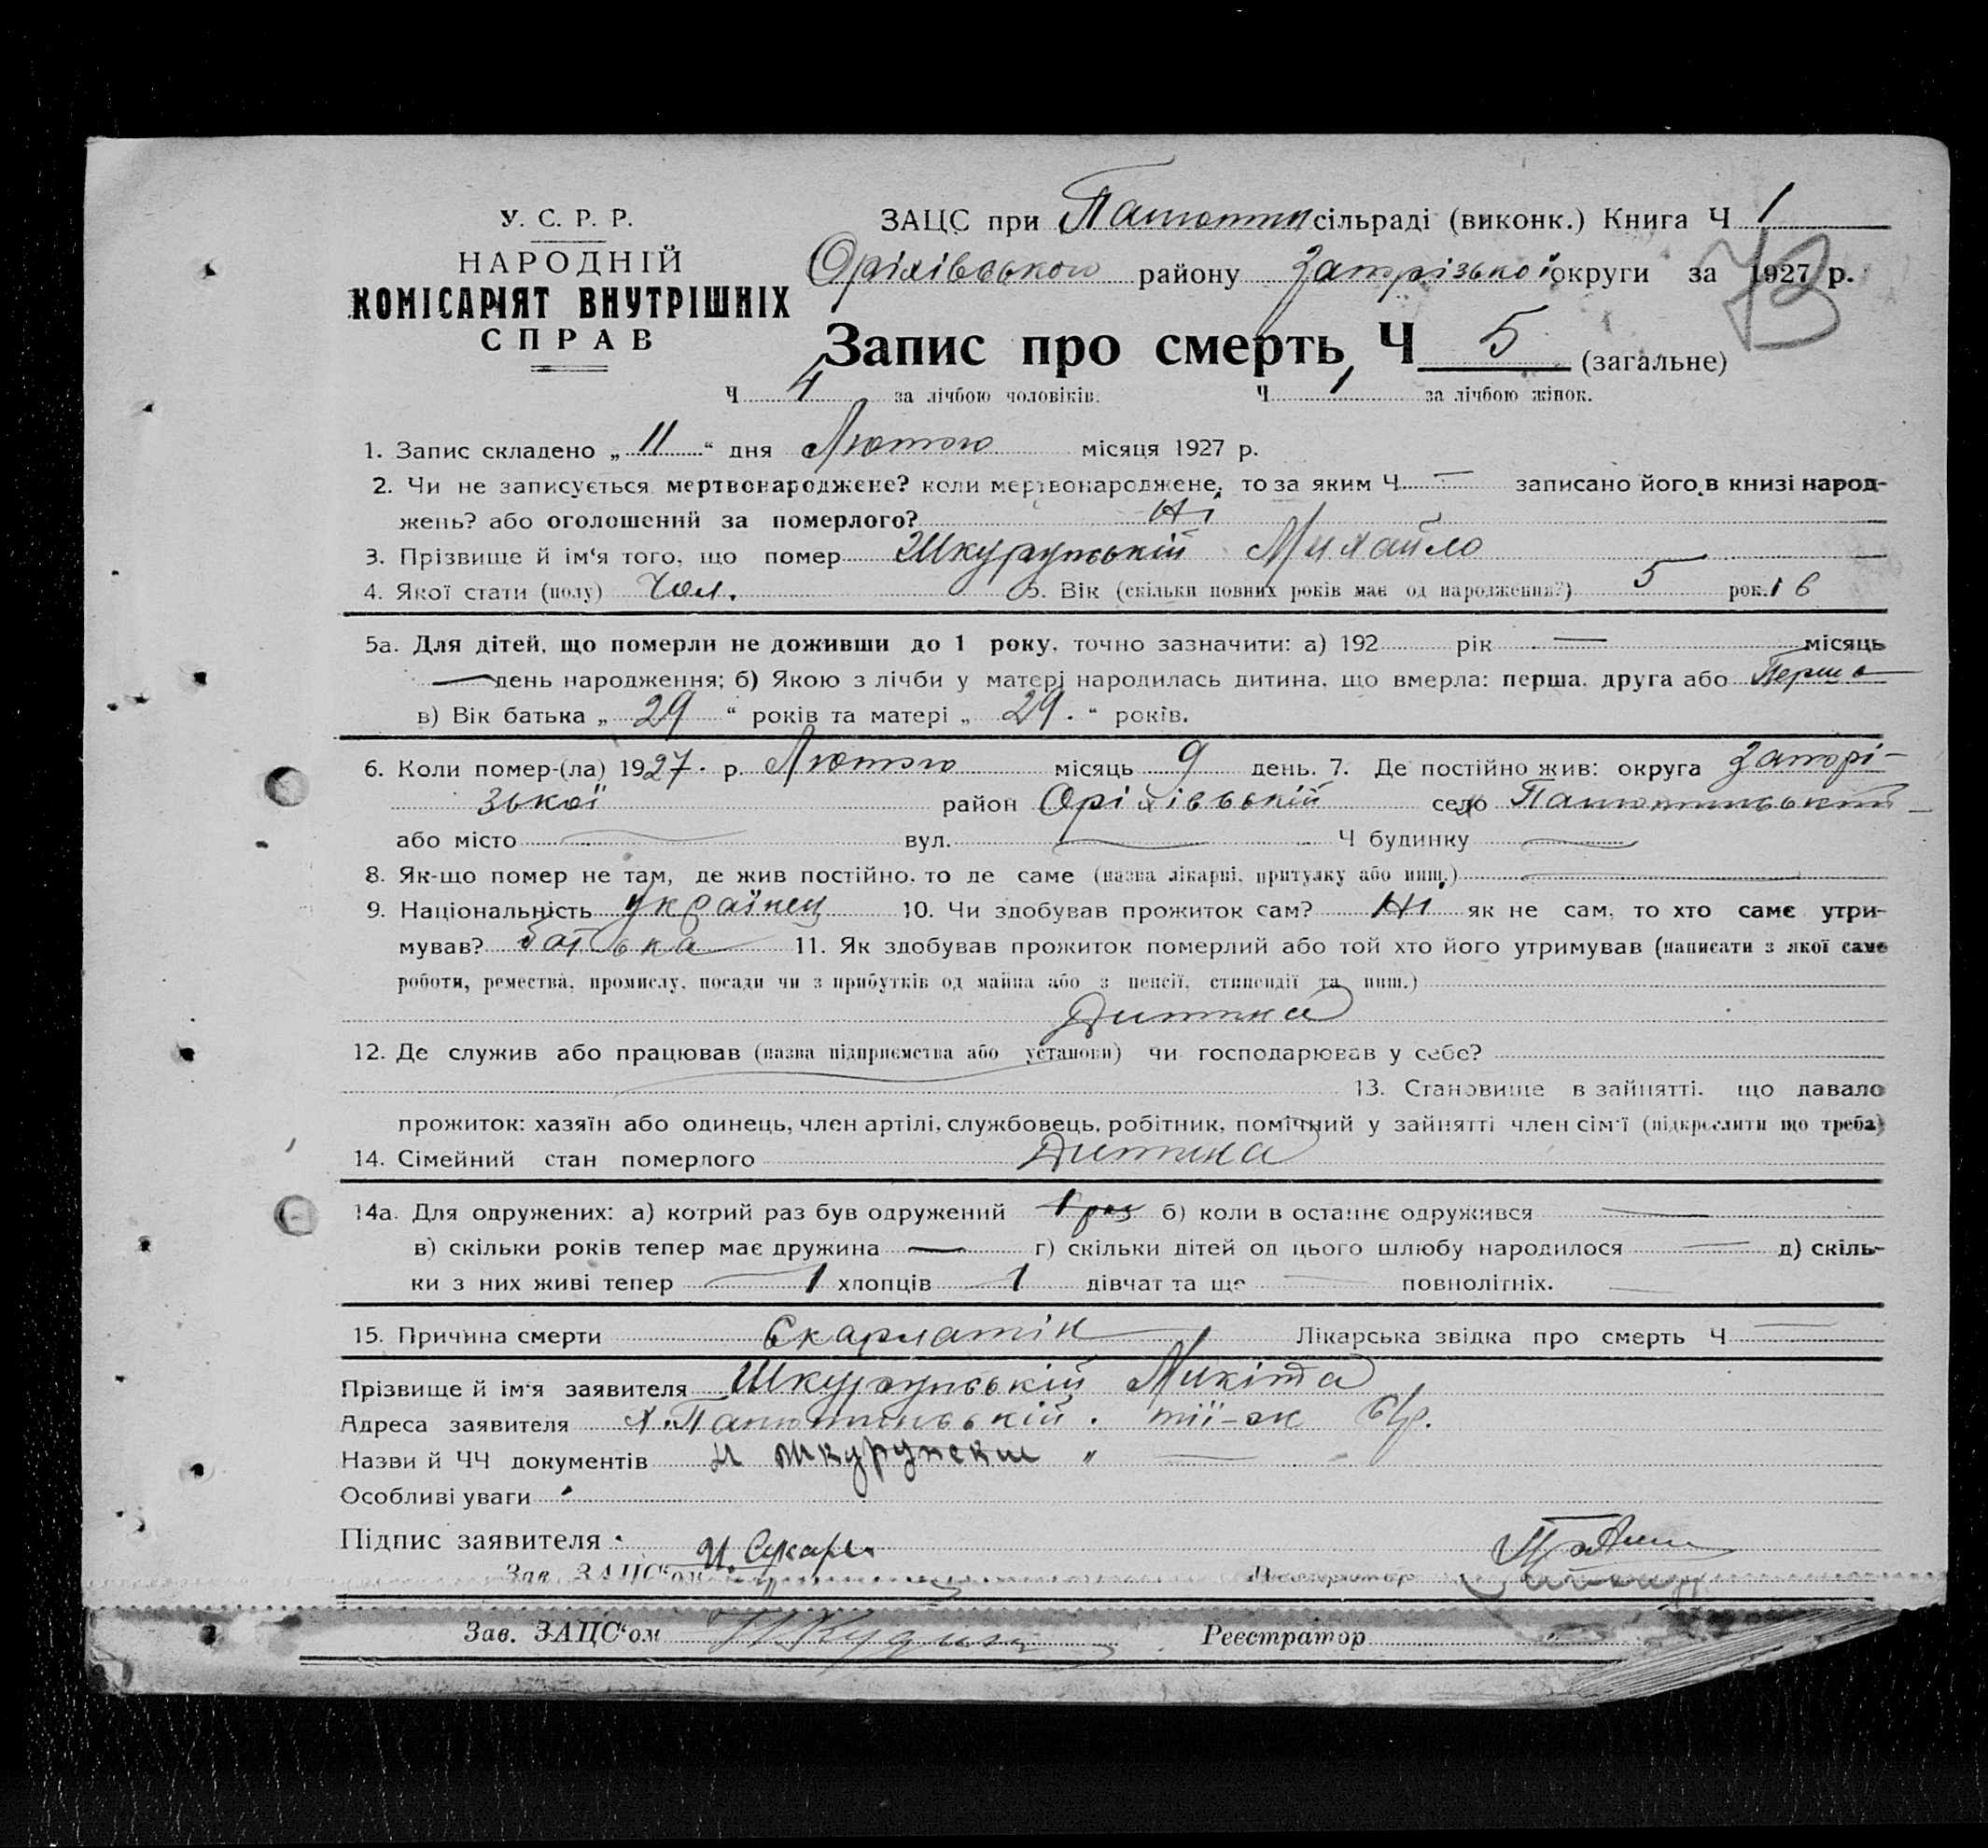 У. С. Р. Р.
НАРОДНІЙ
КОМІСАРІЯТ ВНУТРІШНІХ
СПРАВ
ЗАЦС при сільраді (виконк.) Книга Ч 1
Оріхівського району Запорізької округи за 1927 р.
73
Запис про смерть Ч 5 (загальне)
Ч 4 за лічбою чоловіків. Ч 1 за лічбою жінок.
1. Запис складено „ 11 “ дня Лютого місяця 1927 р.
2. Чи не записується мертвонароджене? коли мертвонароджене, то за яким Ч — записано його в книзі народ-
жень? або оголошений за померлого? Ні
3. Прізвище й ім‘я того, що помер Шкурупській Михайло
4. Якої стати (полу) Чол. 5. Вік (скільки повних років має од народження?) 5 рок.і в
5а. Для дітей, що померли не доживши до 1 року, точно зазначити: а) 192 рік — місяць
— день народження; б) Якою з лічби у матері народилась дитина, що вмерла: перша, друга або Перша
в) Вік батька „ 29 “ років та матері „ 29. “ років.
6. Коли помер-(ла) 1927. р. Лютого місяць 9 день. 7. Де постійно жив: округа Запорі-
зької район Оріхівській село
або місто — вул. — Ч будинку —
8. Як-що помер не там, де жив постійно, то де саме (назва лікарні, притулку або инш.) —
9. Національність українец 10. Чи здобував прожиток сам? Ні як не сам, то хто саме утри-
мував? батька 11. Як здобував прожиток померлий або той хто його утримував (написати з якої саме
роботи, ремества, промислу, посади чи з прибутків од майна або з пенсії, стипендії та инш.)
Дитина
12. Де служив або працював (назва підприємства або установи) чи господарював у себе?
— 13. Становище в зайнятті, що давало
прожиток: хазяїн або одинець, член артілі, службовець, робітник, помічний у зайнятті член сім‘ї (підкреслити що треба)
14. Сімейний стан померлого Дитина
14а. Для одружених: а) котрий раз був одружений 1 раз б) коли в останнє одружився —
в) скільки років тепер має дружина — г) скільки дітей од цього шлюбу народилося — д) скіль-
ки з них живі тепер — 1 хлопців 1 дівчат та ще — повнолітніх.
15. Причина смерти Скарлатін Лікарська звідка про смерть Ч —
Прізвище й ім‘я заявителя Шкурупській Микіта
Адреса заявителя х.
Назви й ЧЧ документів
Особливі уваги
Підпис заявителя
Зав. ЗАЦС‘ом Реєстратор
Зав. ЗАЦС‘ом Реєстратор